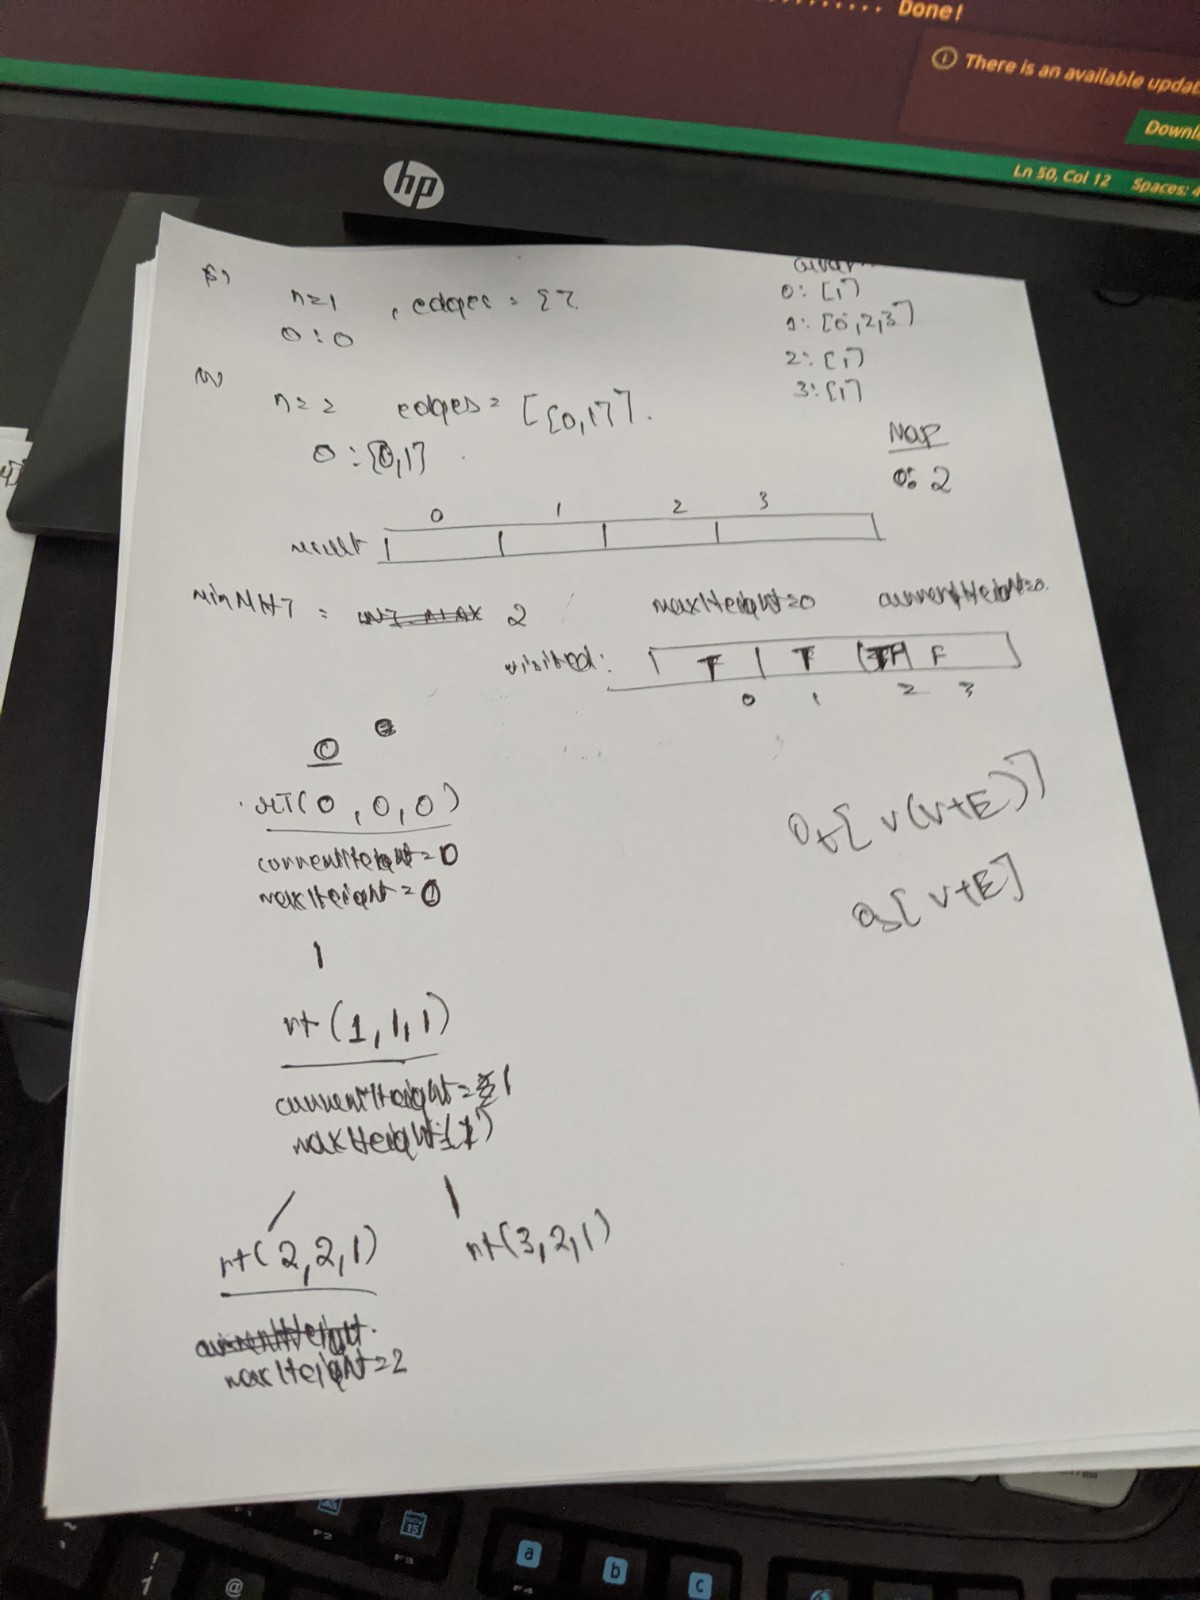 Done!
There is an available updat
Downl
Ln 50, Col 12 Spaces: 4
hp
n=1 , edges = {}
0 : 0
n=2 edges = [[0,1]].
0 : [0,1]
0: [1]
1: [0,2,3]
2: [1]
3: [1]
Map
0: 2
0 1 2 3
result
minMHT = 2
maxHeight=0 currentHeight=0.
visited: T T F
0 1 2 3
0
rt(0,0,0)
currentHeight=0
maxHeight=0
rt(1,1,1)
currentHeight=1
maxHeight=(1)
rt(2,2,1) rt(3,2,1)
maxHeight=2
Ot[V(V+E)]
Os[V+E]
F2
NOV
15
F3
a
b
c
F4
~
!
1
@